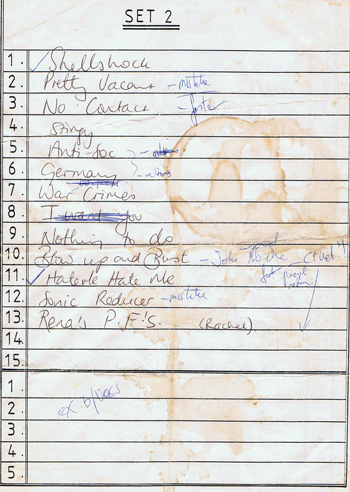 SET 2
1. Shellshock
2. Pretty Vacant - mistake
3. No Contact - faster
4. Stingy
5. Anti-Soc
6. Germany
7. War Crimes
8. I want you
9. Nothing to do
10. Blow up and Bust - John
11. Haters Hate Me
12. Sonic Reducer - mistake
13. Rena's P.F's. (Rachel)
14.
15.
1.
2. ex b/vocs
3.
4.
5.